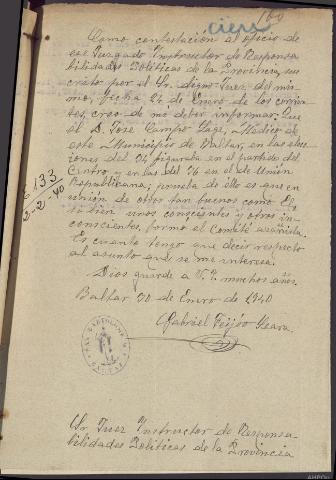 cien
169
Como contestación al oficio de
ese Juzgado Instructor de Responsa
bilidades Políticas de la Provincia, sus
crito por el Sr. digno Juez del mis
mo, fecha 24 de Enero de los corrien
tes, creo de mi deber informar: Que
el D. José Campo Lage, Médico de
este Municipio de Baltar, en las elec
ciones del 34 figuraba en el partido del
Centro, y en las del 36 en el de Unión
Republicana; prueba de ello es que en
unión de otros tan buenos como él
bien unos conscientes y otros in
conscientes, formó el Comité azañista.
Es cuanto tengo que decir respecto
al asunto que se me interesa.
Dios guarde a V. S. muchos años.
Baltar 30 de Enero de 1940
Gabriel Feijóo Seara
133
2-2-40
BALTAR
Sr Juez Instructor de Responsa-
bilidades Políticas de la Provincia